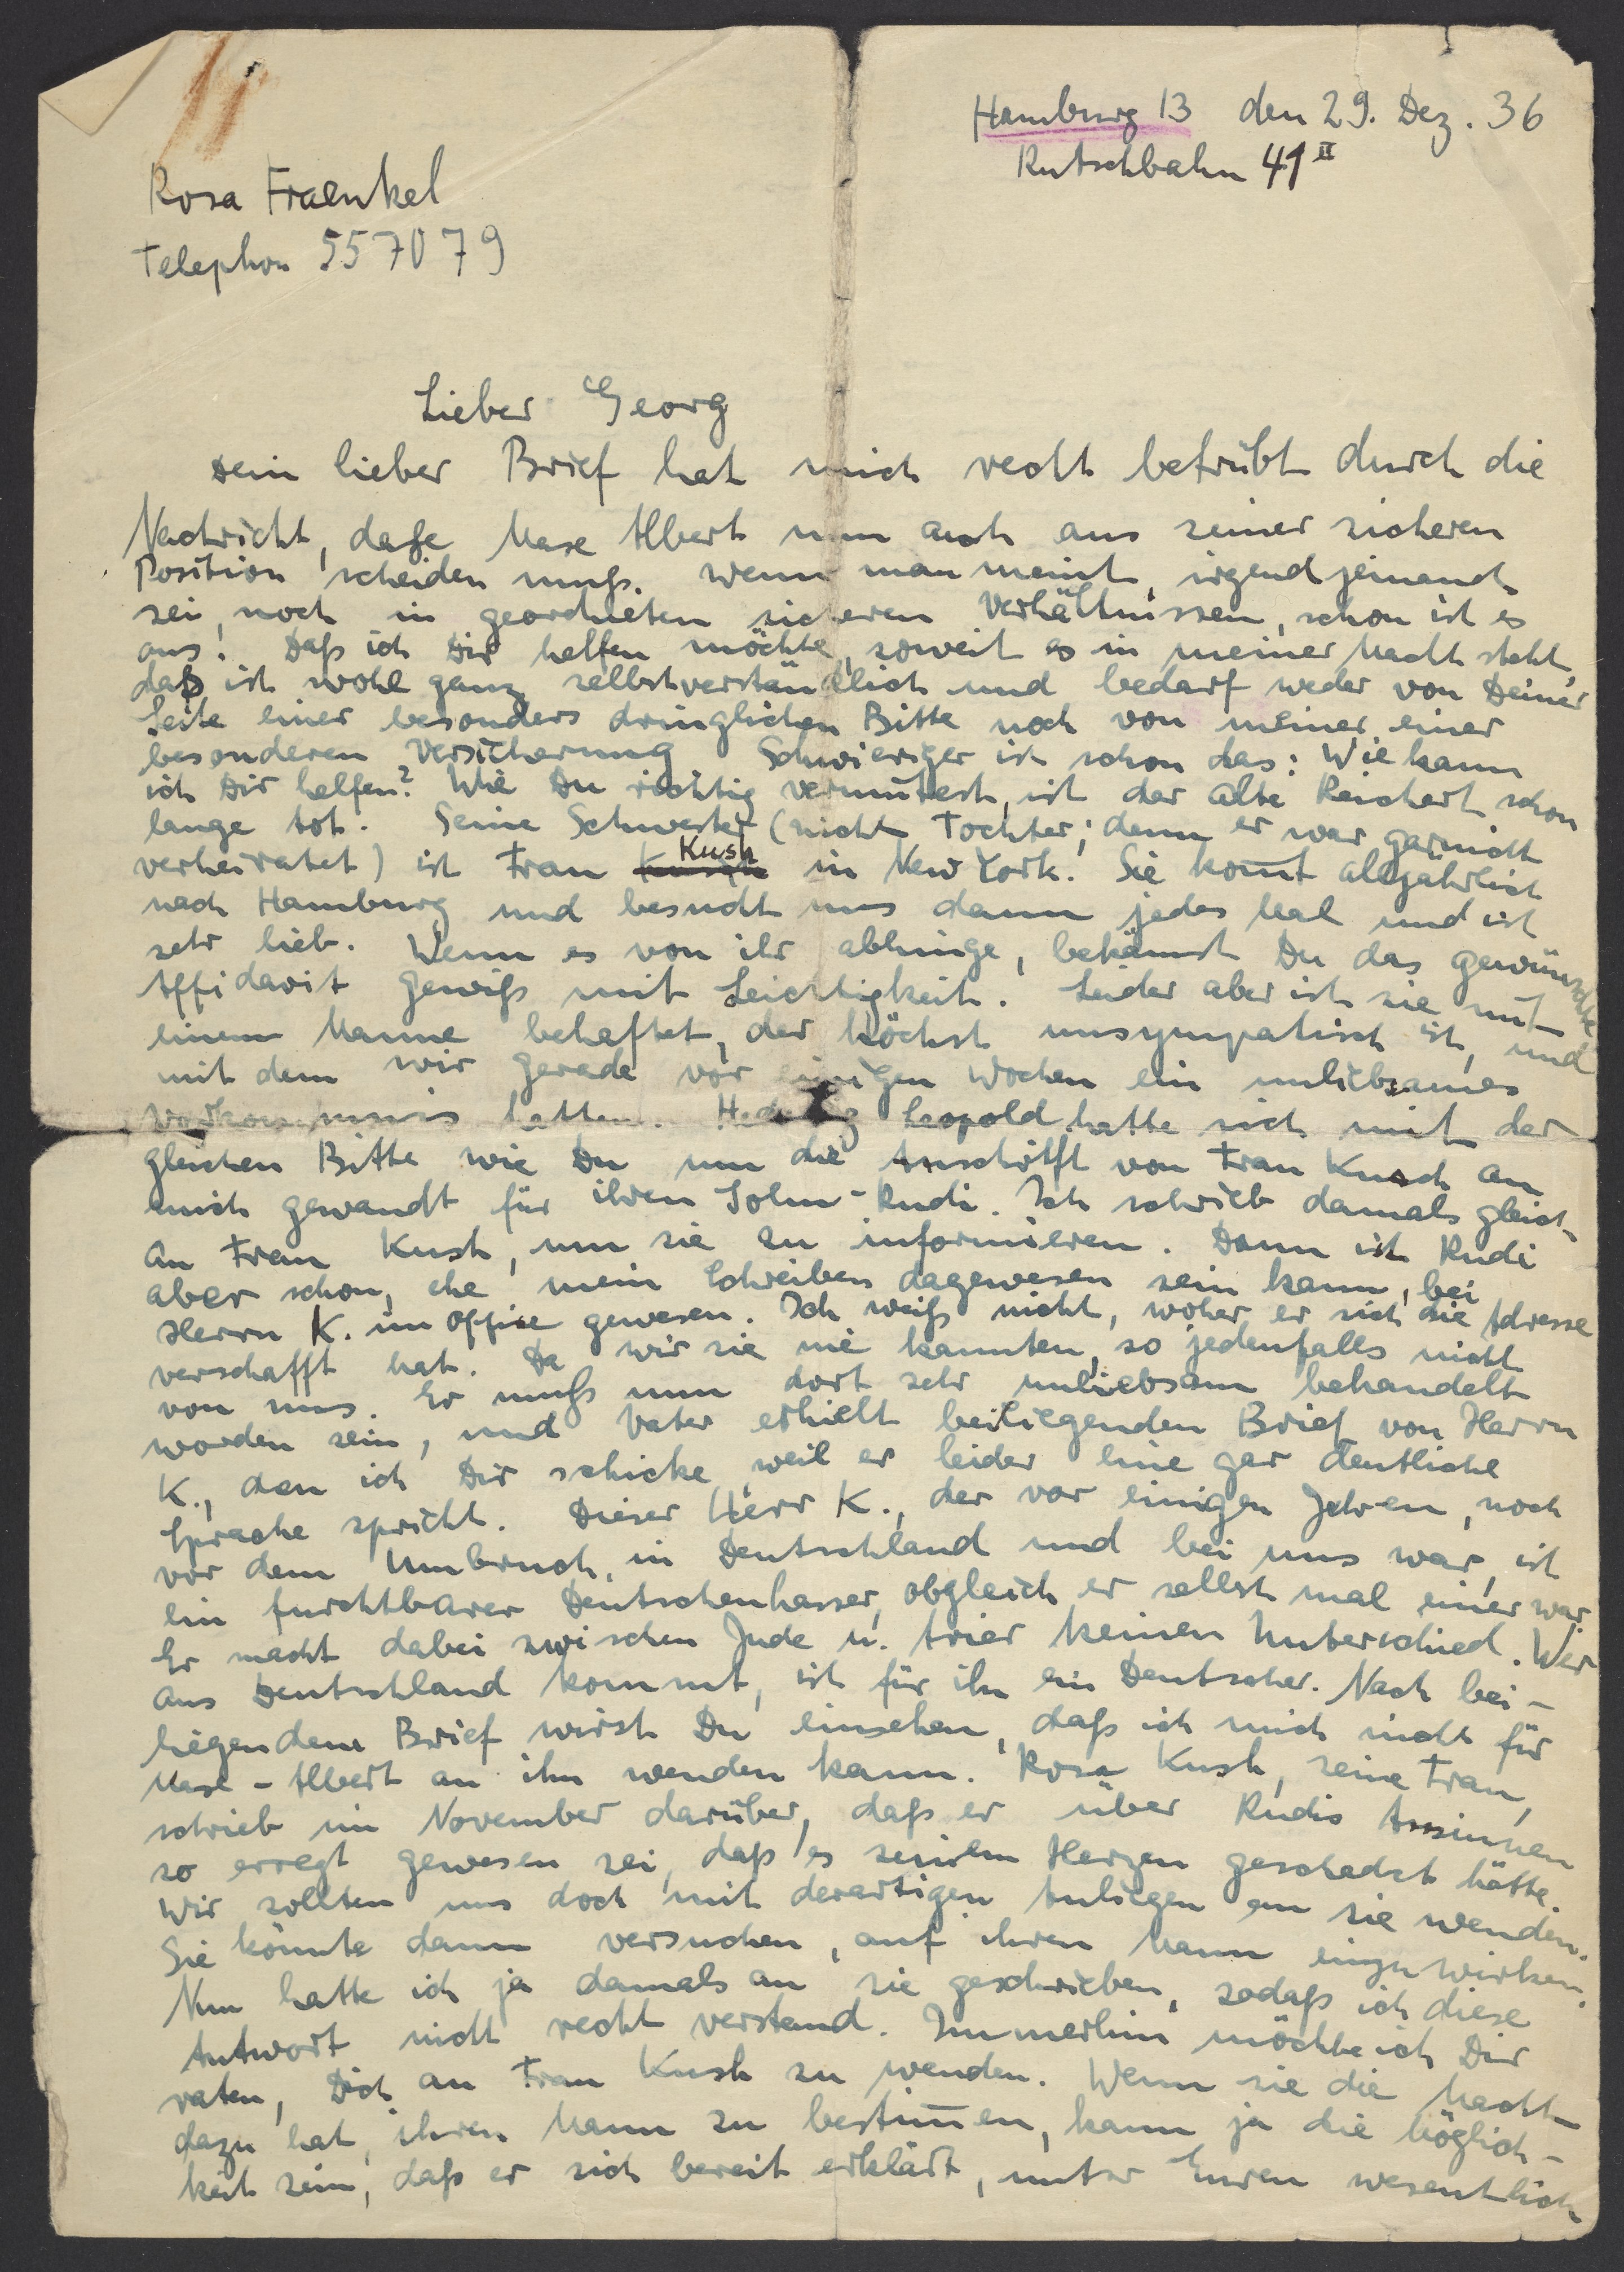 Hamburg 13 den 29. Dez. 36
Rutschbahn 41 II
Rosa Fraenkel
Telephon 557079
Lieber Georg
Dein lieber Brief hat mich recht betrübt durch die
Nachricht, daße Maxe Albert nun auch aus seiner sicheren
Position scheiden muß. Wenn man meint, irgend jemand
sei noch in geordneten sicheren Verhältnissen, schon ist es
aus! Daß ich Dir helfen möchte, soweit es in meiner Macht steht,
daß ist wohl ganz selbstverständlich und bedarf weder von Deiner
Seite einer besonders dringlichen Bitte noch von meiner einer
besonderen Versicherung. Schwieriger ist schon das: Wie kann
ich Dir helfen? Wie Du richtig vermutest, ist der alte Reichert schon
lange tot. Seine Schwester (nicht Tochter; denn er war garnicht
verheiratet) ist Frau Kush in New York. Sie kom̄t alljährlich
nach Hamburg und besucht uns dann jedes Mal und ist
sehr lieb. Wenn es von ihr abhinge, bekämst Du das gewünschte
Affidavit gewiß mit Leichtigkeit. Leider aber ist sie mit
einem Manne behaftet, der höchst unsympatisch ist, und
mit dem wir gerade vor einigen Wochen ein unliebsames
Vorkommnis hatten. Hedwig Leopold hatte sich mit der
gleichen Bitte wie Du um die Anschrift von Frau Kusch an
mich gewandt für ihren Sohn Rudi. Ich schrieb damals gleich
an Frau Kush, um sie zu informieren. Dann ist Rudi
aber schon, ehe mein Schreiben dagewesen sein kann, bei
Herrn K. im Office gewesen. Ich weiß nicht, woher er sich die Adresse
verschafft hat. Da wir sie nie kannten, so jedenfalls nicht
von uns. Er muß nun dort sehr unliebsam behandelt
worden sein, und Vater erhielt beiliegenden Brief von Herrn
K., den ich Dir schicke, weil er leider eine gar deutliche
Sprache spricht. Dieser Herr K., der vor einigen Jahren, noch
vor dem Umbruch, in Deutschland und bei uns war, ist
ein furchtbarer Deutschenhasser, obgleich er selbst mal einer war.
Er macht dabei zwischen Jude u. Arier keinen Unterschied. Wer
aus Deutschland kommt, ist für ihn ein Deutscher. Nach bei-
liegendem Brief wirst Du einsehen, daß ich mich nicht für
Maxe-Albert an ihn wenden kann. Rosa Kush, seine Frau,
schrieb im November darüber, daß er über Rudis Ansinnen
so erregt gewesen sei, daß es seinem Herzen geschadet hätte.
Wir sollten uns doch mit derartigen Anliegen an sie wenden.
Sie könnte dann versuchen, auf ihren Mann einzuwirken.
Nun hatte ich ja damals an sie geschrieben, sodaß ich diese
Antwort nicht recht verstand. Immerhin möchte ich Dir
raten, Dich an Frau Kush zu wenden. Wenn sie die Macht
dazu hat, ihren Mann zu bestim̄en, kann ja die Möglich-
keit sein, daß er sich bereit erklärt, unter Euren wesentlich